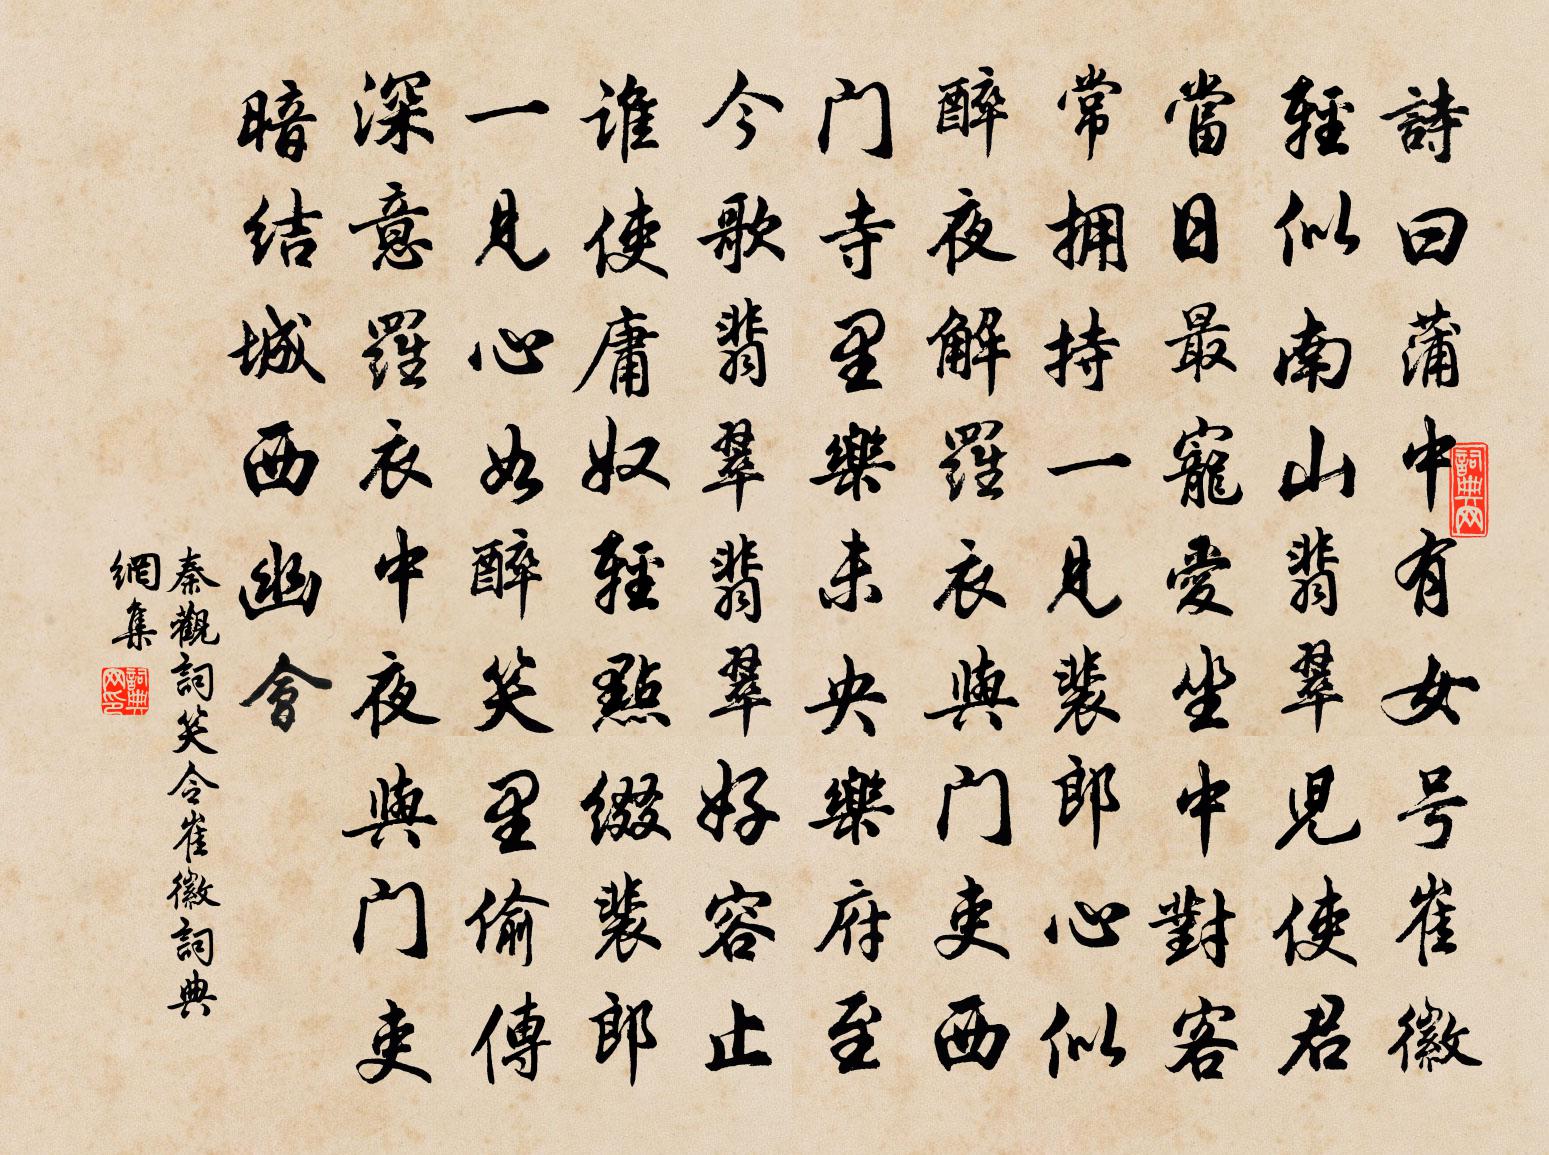 詩曰蒲中有女号崔徽
輕似南山翡翠児使君
當日最寵愛坐中對客
常拥持一見裴郎心似
醉夜解羅衣與门吏西
门寺里樂未央樂府至
今歌翡翠翡翠好容止
谁使庸奴輕點缀裴郎
一見心如醉笑里偷傳
深意羅衣中夜與门吏
暗结城西幽會
秦觀詞笑令崔徽詞典
網集
詞典网
詞典网印